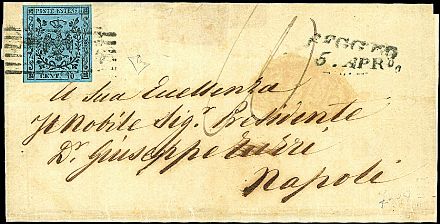 POSTE ESTENSI
CENT. 40
REGGIO
5. APR
A Sua Eccellenza
Il Nobile Sigr. Presidente
Dr. Giuseppe
Napoli